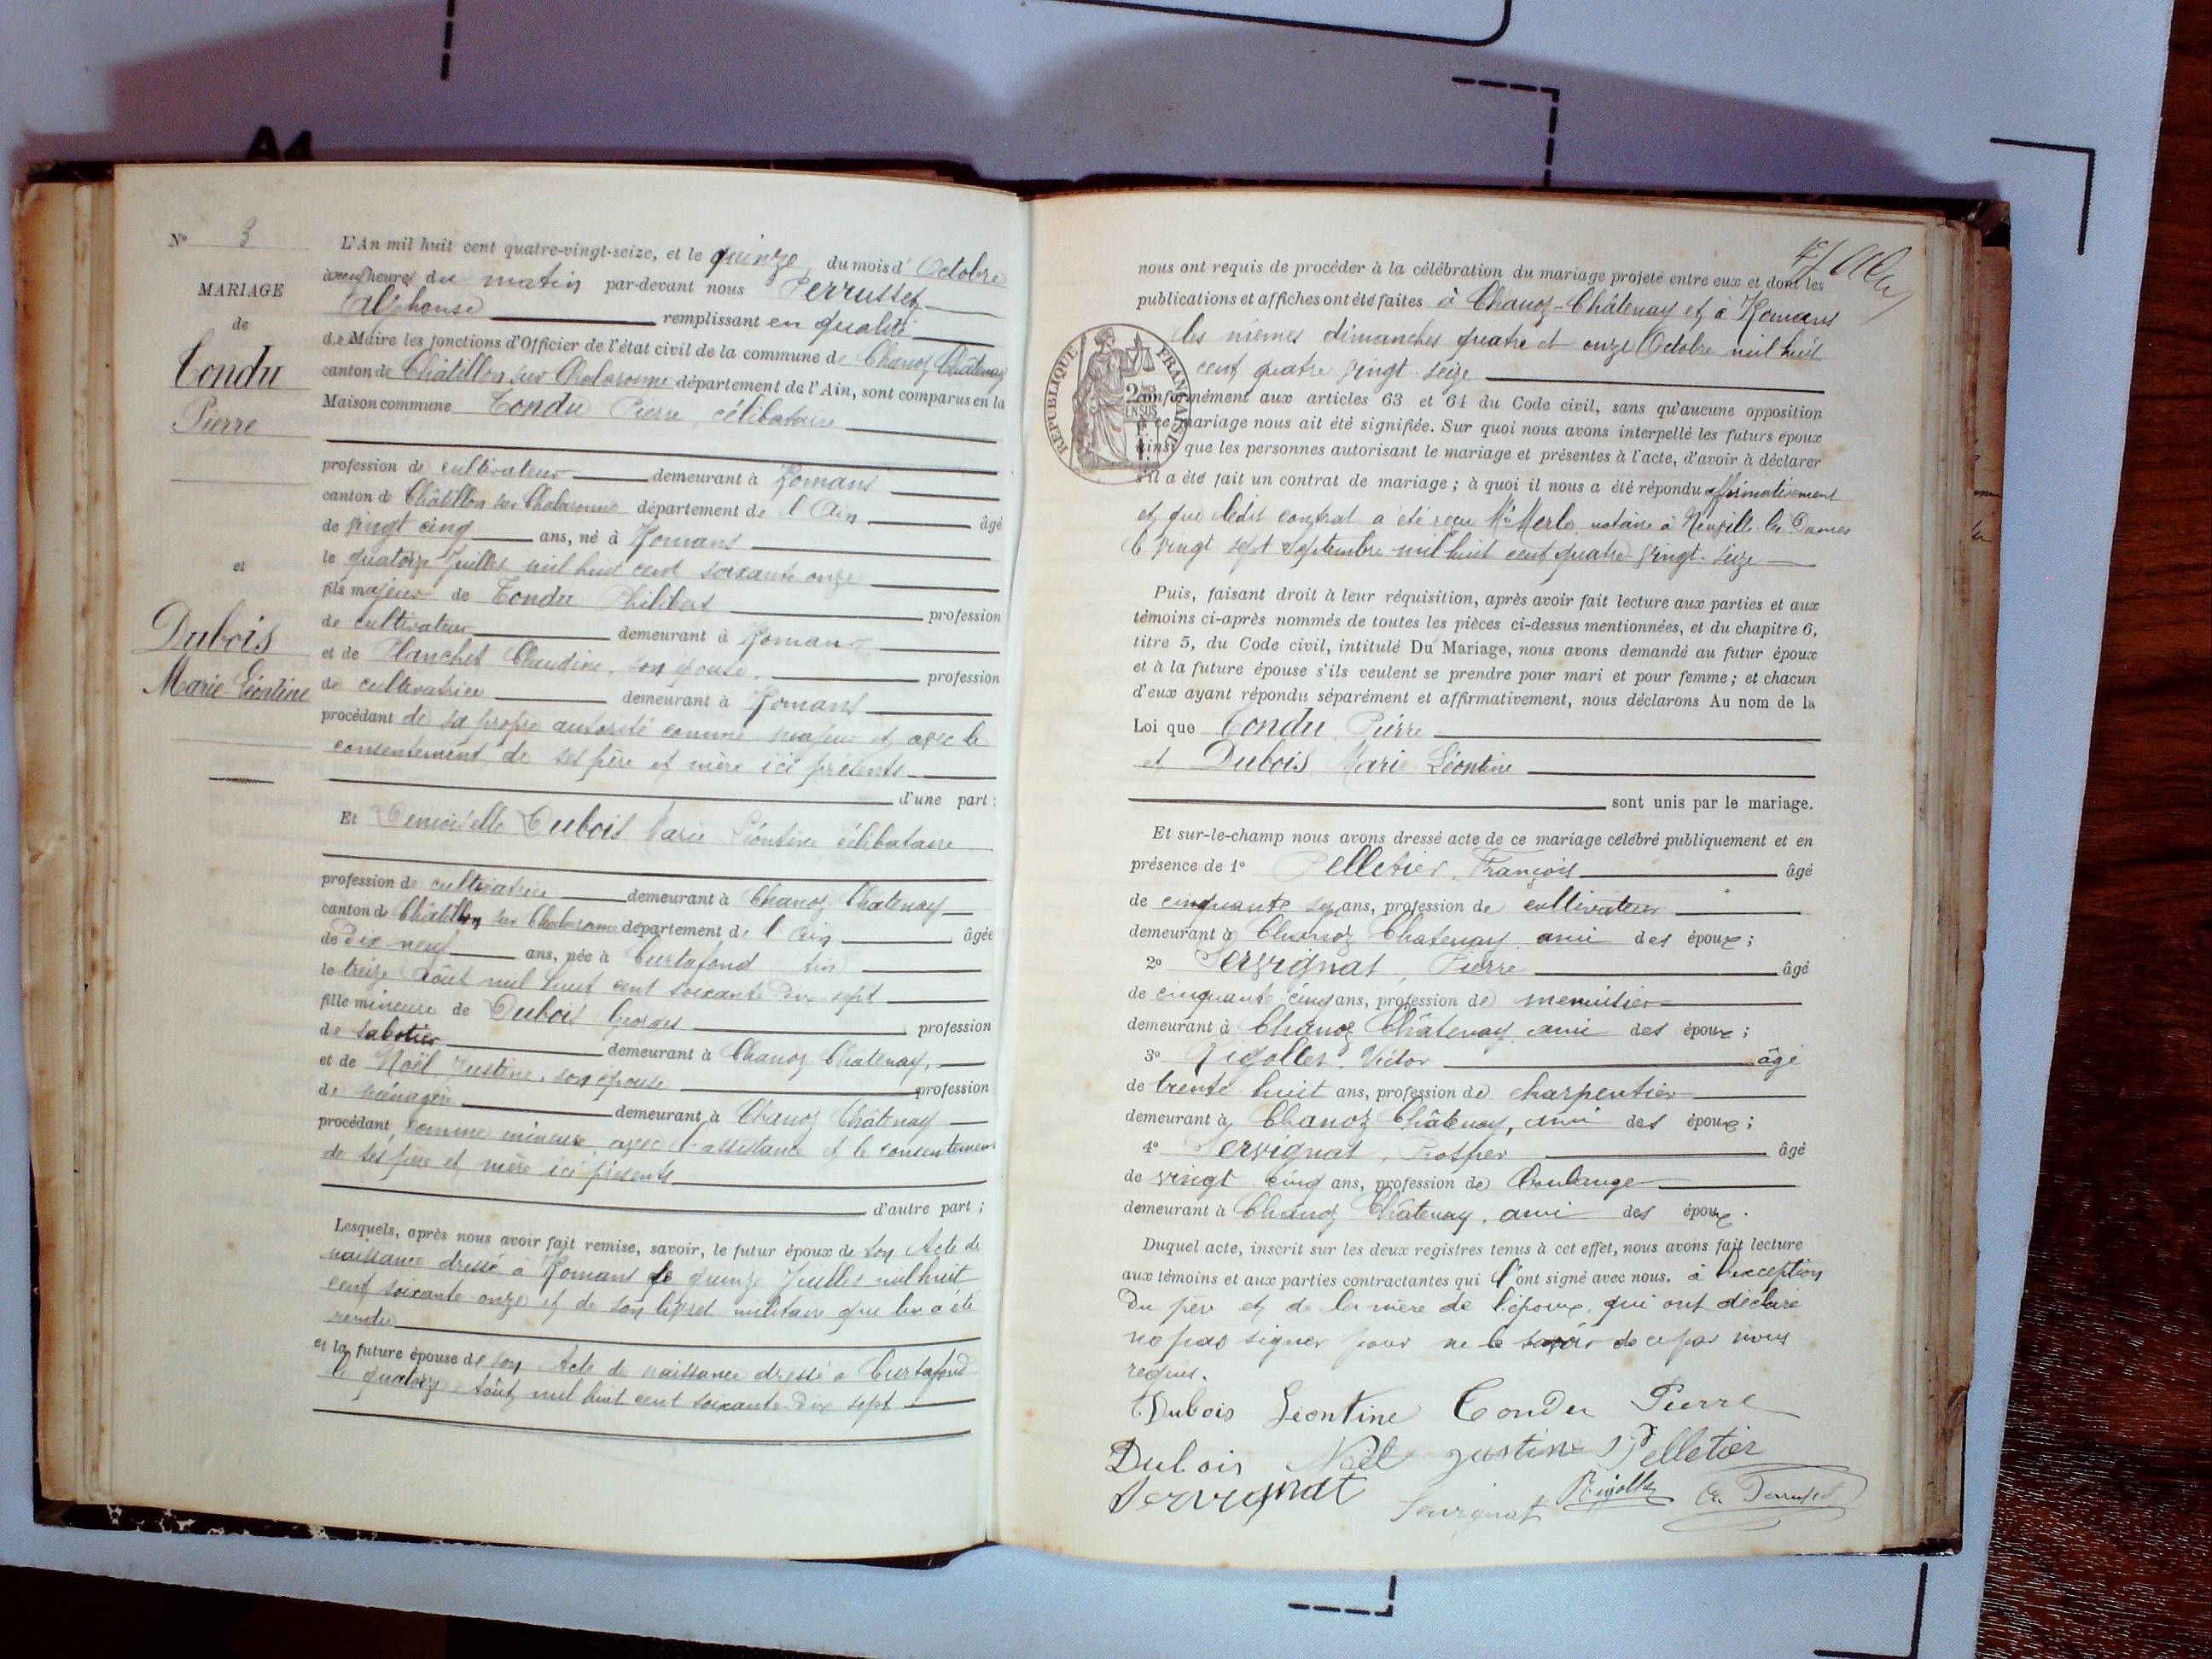 A4
N° 3
MARIAGE
de
Condu
Pierre
et
Dubois
Marie-Léontine
L'An mil huit cent quatre-vingt-seize, et le quinze du mois d'Octobre
à neuf heures du matin par-devant nous Perrusset
Alphonse remplissant en qualité
de Maire les fonctions d'Officier de l'état civil de la commune de Chanoz Châtenay
canton de Châtillon sur Chalaronne département de l'Ain, sont comparus en la
Maison commune Condu Pierre, célibataire
profession de cultivateur demeurant à Romans
canton de Châtillon sur Chalaronne département de l'Ain âgé
de vingt cinq ans, né à Romans
le quatorze Juillet mil huit cent soixante onze
fils majeur de Condu Philibert profession
de cultivateur demeurant à Romans
et de Planchet Claudine, son épouse, profession
de cultivatrice demeurant à Romans
procédant de sa propre autorité comme majeur et avec le
consentement de ses père et mère ici présents
d'une part ;
Et Demoiselle Dubois Marie Léontine célibataire
profession de cultivatrice demeurant à Chanoz Châtenay
canton de Châtillon sur Chalaronne département de l'Ain âgée
de dix neuf ans, née à Curtafond Ain
le treize Août mil huit cent soixante dix-sept
fille mineure de Dubois Georges profession
de sabotier demeurant à Chanoz Châtenay,
et de Noël, Justine, son épouse profession
de ménagère demeurant à Chanoz Châtenay
procédant comme mineure, avec l'assistance et le consentement
de ses père et mère ici présents
d'autre part ;
Lesquels, après nous avoir fait remise, savoir, le futur époux de son Acte de
naissance dressé à Romans le quinze Juillet mil huit
cent soixante onze et de son livret militaire qui lui a été
rendu
et la future épouse de son Acte de naissance dressé à Curtafond
le quatorze Août mil huit cent soixante-dix sept
nous ont requis de procéder à la célébration du mariage projeté entre eux et dont les
publications et affiches ont été faites à Chanoz-Châtenay et à Romans
les mêmes dimanches quatre et onze Octobre mil huit
cent quatre vingt-seize
RÉPUBLIQUE FRANÇAISE
conformément aux articles 63 et 64 du Code civil, sans qu'aucune opposition
à ce mariage nous ait été signifiée. Sur quoi nous avons interpellé les futurs époux
ainsi que les personnes autorisant le mariage et présentes à l'acte, d'avoir à déclarer
s'il a été fait un contrat de mariage ; à quoi il nous a été répondu affirmativement
et que ledit contrat a été reçu Me Merle notaire à Neuville-les-Dames
le vingt sept Septembre mil huit cent quatre-vingt-seize
Puis, faisant droit à leur réquisition, après avoir fait lecture aux parties et aux
témoins ci-après nommés de toutes les pièces ci-dessus mentionnées, et du chapitre 6,
titre 5, du Code civil, intitulé Du Mariage, nous avons demandé au futur époux
et à la future épouse s'ils veulent se prendre pour mari et pour femme ; et chacun
d'eux ayant répondu séparément et affirmativement, nous déclarons Au nom de la
Loi que Condu Pierre
et Dubois Marie Léontine
sont unis par le mariage.
Et sur-le-champ nous avons dressé acte de ce mariage célébré publiquement et en
présence de 1° Pelletier, François âgé
de cinquante ans, profession de cultivateur
demeurant à Chanoz Chatenay ami des époux ;
2° Servignat, Pierre âgé
de cinquante-cinq ans, profession de menuisier
demeurant à Chanoz Châtenay ami des époux ;
3° Rigollet, Victor âgé
de trente-huit ans, profession de charpentier
demeurant à Chanoz Châtenay, ami des époux ;
4° Servignat, Prosper âgé
de vingt cinq ans, profession de Boulanger
demeurant à Chanoz Châtenay, ami des époux.
Duquel acte, inscrit sur les deux registres tenus à cet effet, nous avons fait lecture
aux témoins et aux parties contractantes qui l'ont signé avec nous. à l'exception
du père et de la mère de l'époux, qui ont déclaré
ne pas signer pour ne le savoir de ce par nous
requis.
Dubois Léontine Condu Pierre
Dubois Noël Justine Pelletier
Servignat Servignat Rigollet A. Perrusset